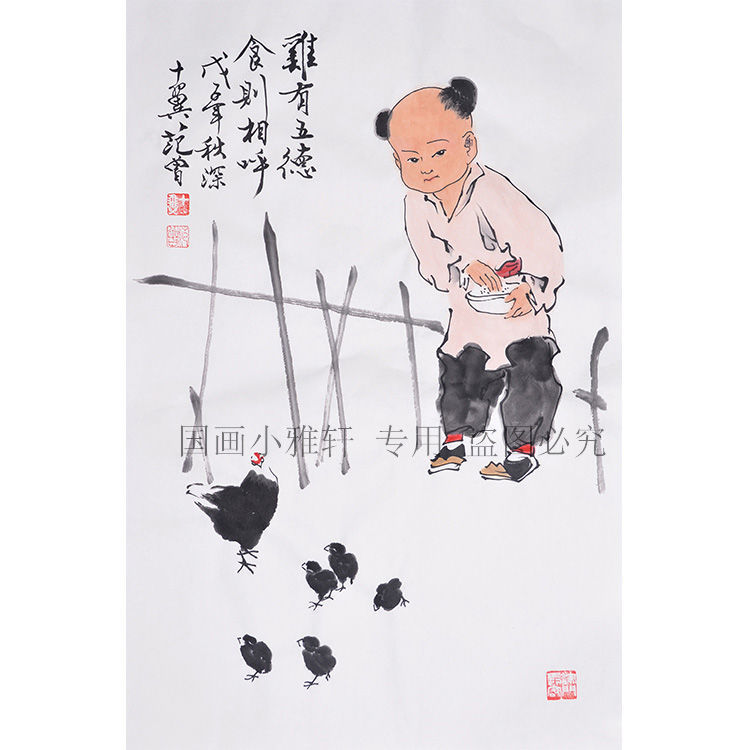 雞有五德
食則相呼
戊子年秋深
十翼范曾
国画小雅轩 专用 盗图必究